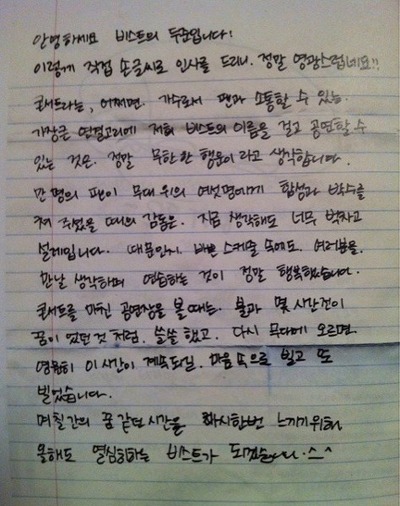 안녕하세요 비스트의 두준입니다!
이렇게 직접 손글씨로 인사를 드리니. 정말 영광스럽네요!!
콘서트라는, 어쩌면. 가수로서 팬과 소통할 수 있는.
가장큰 연결고리에 저희 비스트의 이름을 걸고 공연할 수
있는 것은. 정말 무한한 행운이라고 생각합니다.
만 명의 팬이 무대 위의 여섯명에게 함성과 박수를
쳐 주셨을 때의 감동은. 지금 생각해도 너무 벅차고
설레입니다. 때문인지. 바쁜 스케줄 속에도. 여러분을.
만날 생각하며 연습하는 것이 정말 행복했습니다.
콘서트를 마친 공연장을 볼 때는. 불과 몇 시간전이
꿈이 있던 것 처럼. 쓸쓸했고. 다시 무대에 오르면.
영원히 이 시간이 계속되길. 마음 속으로 빌고 또
빌었습니다.
며칠간의 꿈 같던 시간을 다시한번 느끼기위해
올해도 열심히하는 비스트가 되겠습니다.^스^